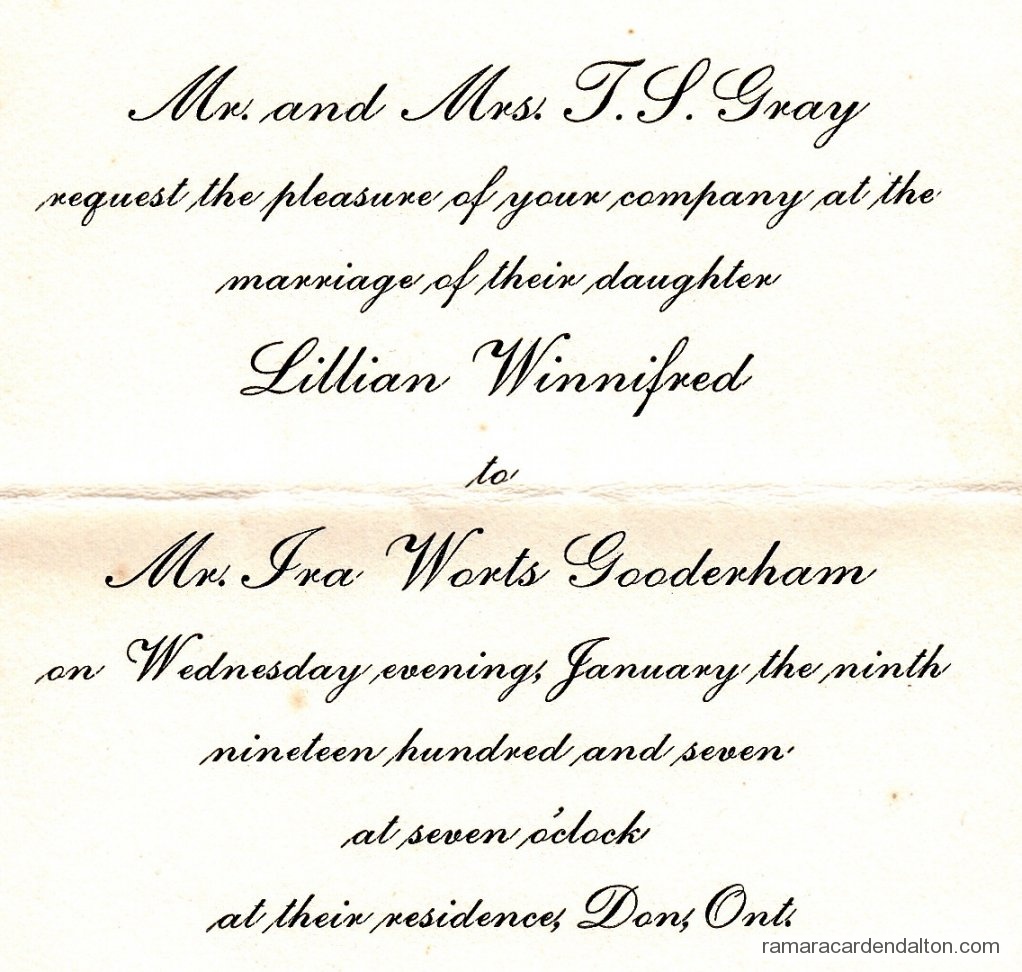 Mr. and Mrs. T. S. Gray
request the pleasure of your company at the
marriage of their daughter
Lillian Winnifred
to
Mr. Ira Worts Gooderham
on Wednesday evening, January the ninth
nineteen hundred and seven
at seven o'clock
at their residence, Don, Ont.
ramaracardendalton.com